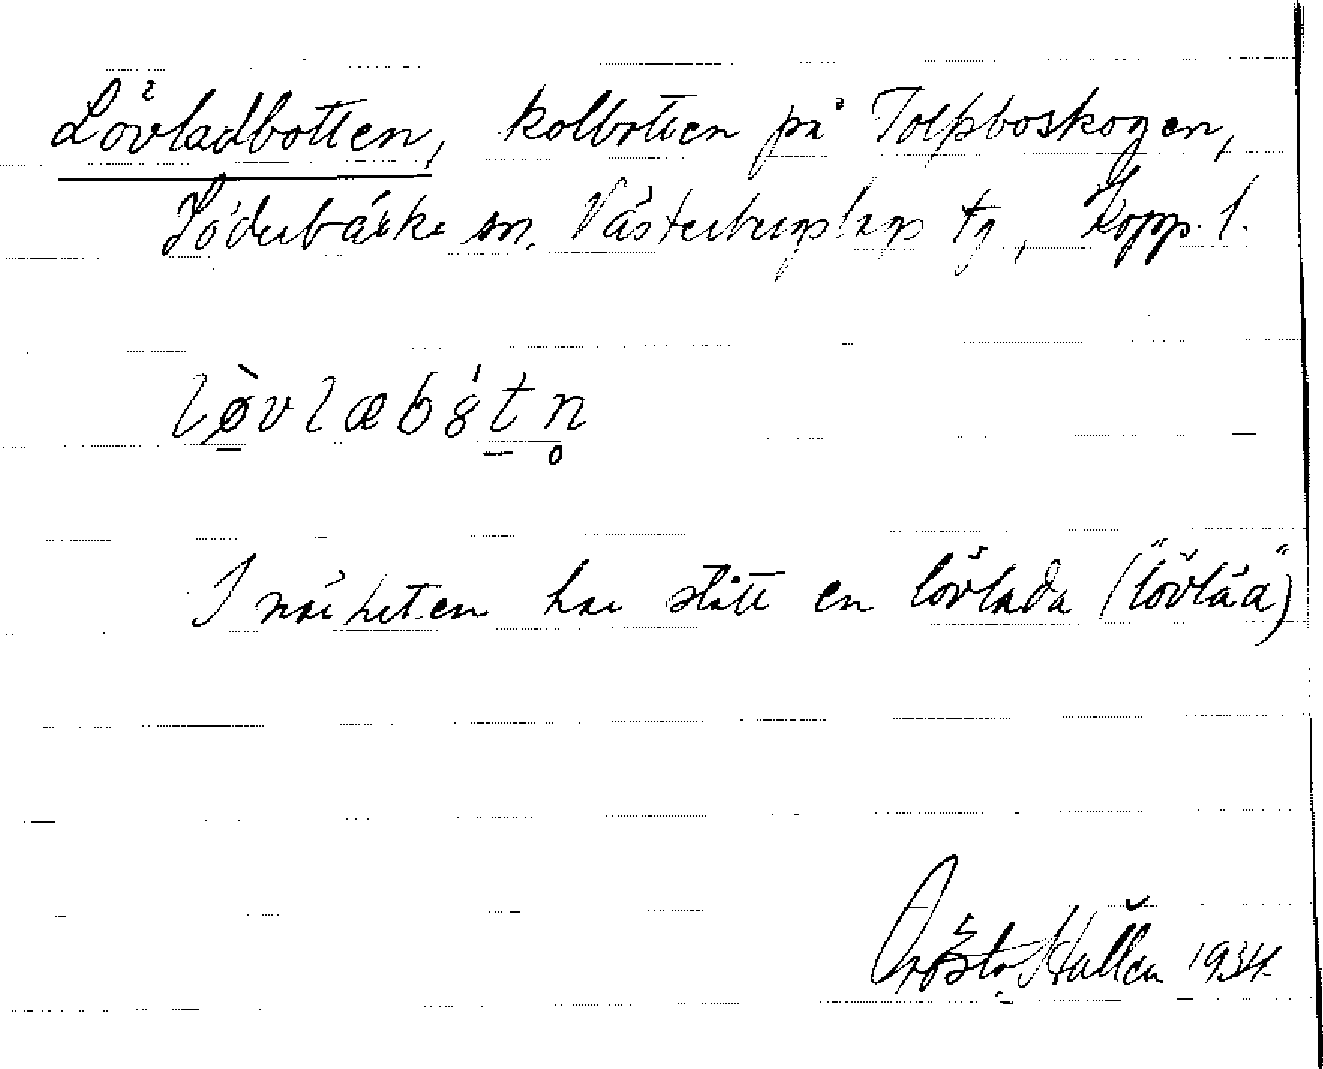 Lövladbotten, kolbotten på Tolpboskogen,
Söderbärke sn. Västerbergslags tg, Kopp. l.
lø̀vlæbȣ́tn̥
I närheten har stått en lövlada ("lövláa")
Gösta Hallén 1934.